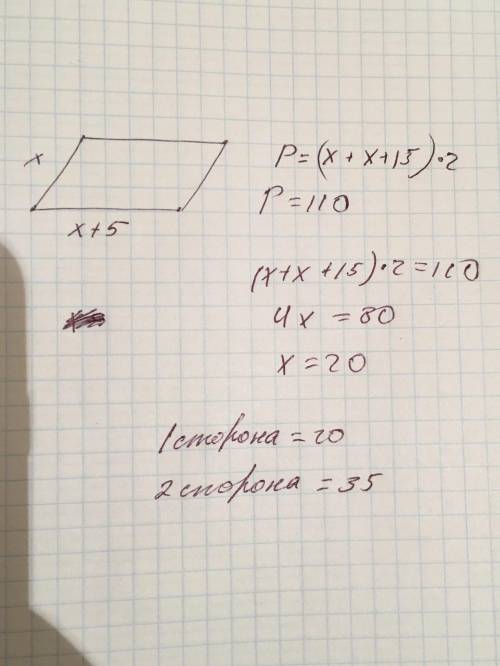 x
x+5
P=(x+x+15)·2
P=110
(x+x+15)·2=110
4x=80
x=20
1 сторона=20
2 сторона=35